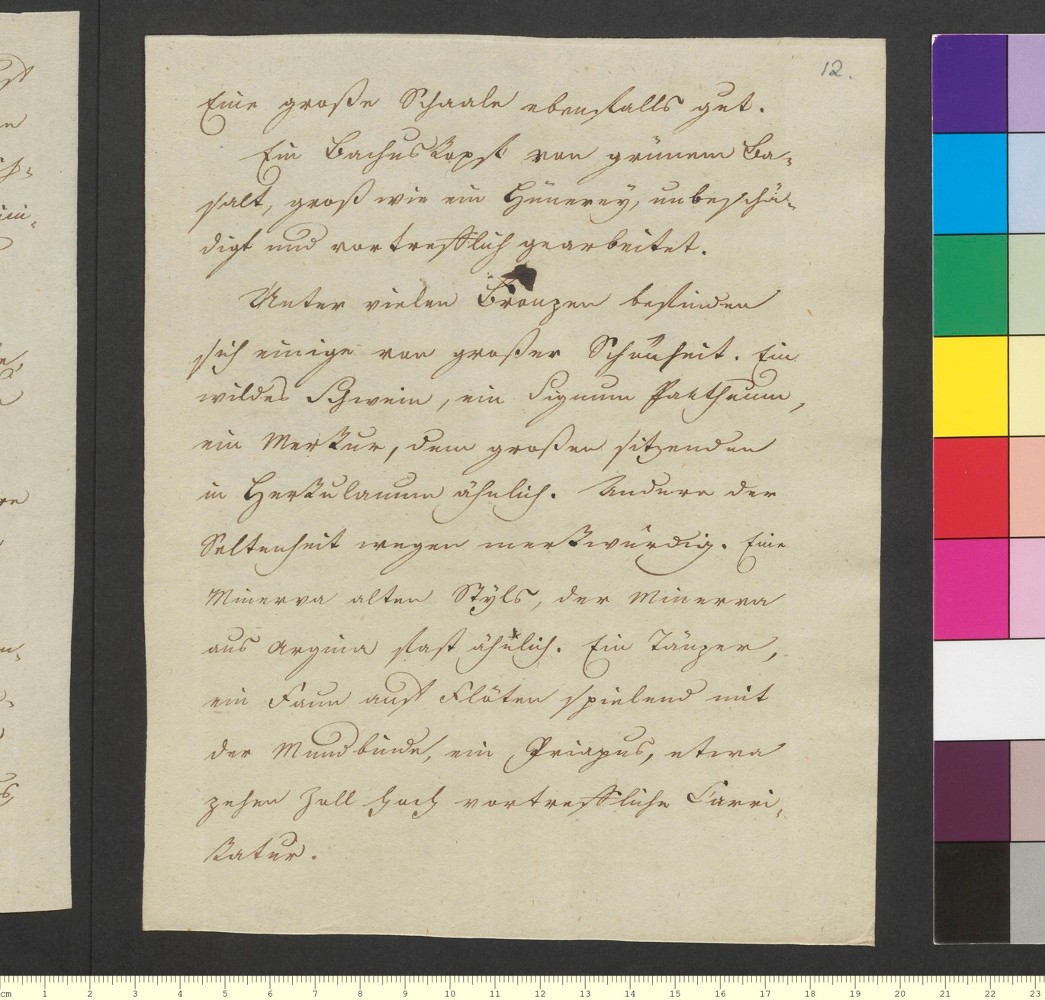 12.
Eine große Schaale ebenfalls gut.
Ein Bachuskopf von grünem Ba-
salt, groß wie ein Hünerey, unbeschä-
digt und vortrefflich gearbeitet.
Unter vielen Bronzen befinden
sich einige von großer Schönheit. Ein
wildes Schwein, ein Signum Pantheum,
ein Merkur, dem großen sitzenden
in Herkulanum ähnlich. Andere der
Seltenheit wegen merkwürdig. Eine
Minerva alten Styls, der Minerva
aus Aegina fast ähnlich. Ein Tänzer,
ein Faun auf Flöten spielend mit
der Mundbinde, ein Priapus, etwa
zehen Zoll hoch vortreffliche Carri-
katur.